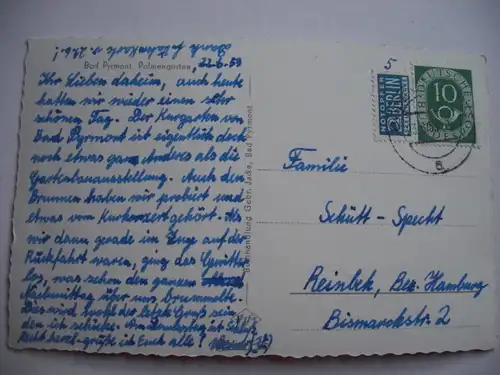 Bad Pyrmont, Palmengarten
22.6.53
Ihr Lieben daheim, auch heute
hatten wir wieder einen sehr
schönen Tag. Der Kurgarten von
Bad Pyrmont ist eigentlich doch
noch etwas ganz Anderes als die
Gartenbauausstellung. Auch den
Brunnen haben wir probiert und
etwas vom Kurkonzert gehört. Als
wir dann gerade im Zuge auf der
Rückfahrt waren, ging das Gewitter
los, was schon den ganzen
Nachmittag über uns brummelte.
Dies wird wohl der letzte Gruß sein,
den ich schicke. Am Donnerstag ist
Recht herzl. grüßt Euch alle!
Buchhandlung Gebr. Jacke, Bad Pyrmont
5
NOTOPFER
2 BERLIN
STEUERMARKE
DEUTSCHE
10
Familie
Schütt-Specht
Reinbek, Bez. Hamburg
Bismarckstr. 2